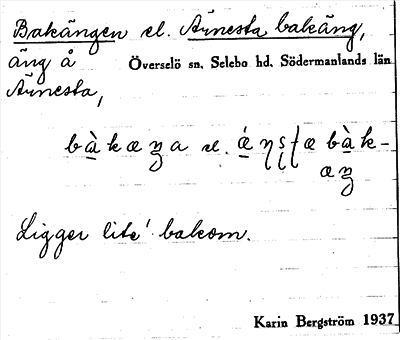 Bakängen el. Årnesta bakäng,
äng å Överselö sn. Selebo hd. Södermanlands län
Årnesta,
el.
Ligger lite' bakom.
Karin Bergström 1937